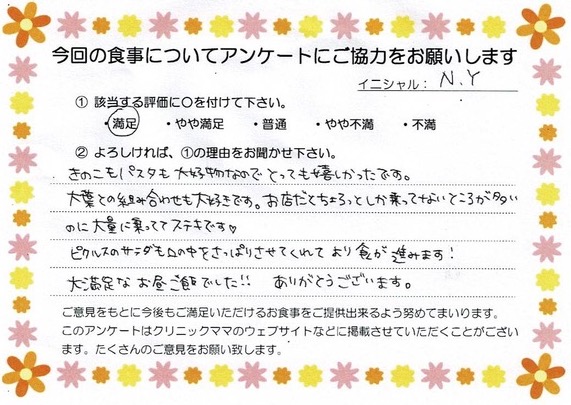 今回の食事についてアンケートにご協力をお願いします
イニシャル： N.Y
① 該当する評価に〇を付けて下さい。
・満足 ・やや満足 ・普通 ・やや不満 ・不満
② よろしければ、①の理由をお聞かせ下さい。
きのこもパスタも大好物なのでとっても嬉しかったです。
大葉との組み合わせも大好きです。お店だとちょろっとしか乗ってないところが多い
のに大量に乗っててステキです♡
ピクルスのサラダも口の中をさっぱりさせてくれて より食が進みます！
大満足な お昼ご飯でした!! ありがとうございます。
ご意見をもとに今後もご満足いただけるお食事をご提供出来るよう努めてまいります。
このアンケートはクリニックママのウェブサイトなどに掲載させていただくことがござい
ます。たくさんのご意見をお願い致します。